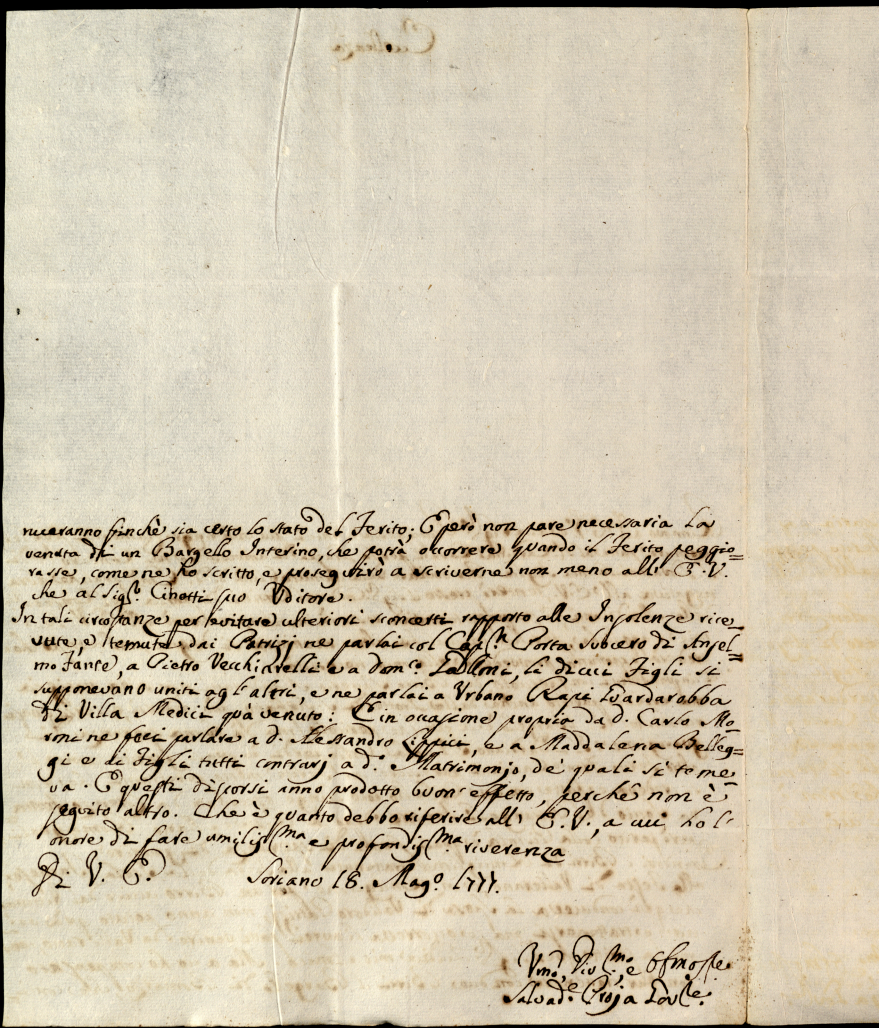 nueranno finchè sia certo lo stato del Ferito; E però non pare necessaria la
venuta di un Bargello Interino, che potrà occorrere quando il Ferito peggio=
rasse, come ne ho scritto, e proseguirò a scriverne non meno all' E. V.
che al Sigr. Cinotti suo Uditore.
In tali circostanze per evitare ulteriori sconcerti rapporto alle Insolenze rice_
vute, e temute dai Patrizj ne parlai col Capn. Porta Suocero di Ansel=
mo Fante, a Pietro Vecchiarelli e a Domco. li di cui Figli si
supponevano uniti agl' altri, e ne parlai a Urbano Rapi Guardarobba
di Villa Medici quà venuto: E in occasione propria da D. Carlo Mo_
roni ne feci parlare a D. Alessandro Lippici, e a Maddalena Belleg=
gi e di Figli tutti contrarj a do. Matrimonjo, de' quali si teme_
va. E questi discorsi anno prodotto buon' effetto, perchè non è
seguito altro. Che è quanto debbo riferire all' E. V., a cui ho l'
onore di fare umilissma e profondissma riverenza
Di V. E. Soriano 18. Mago. 1777.
Umo, Divmo, e
Salvade. Proja Gove.